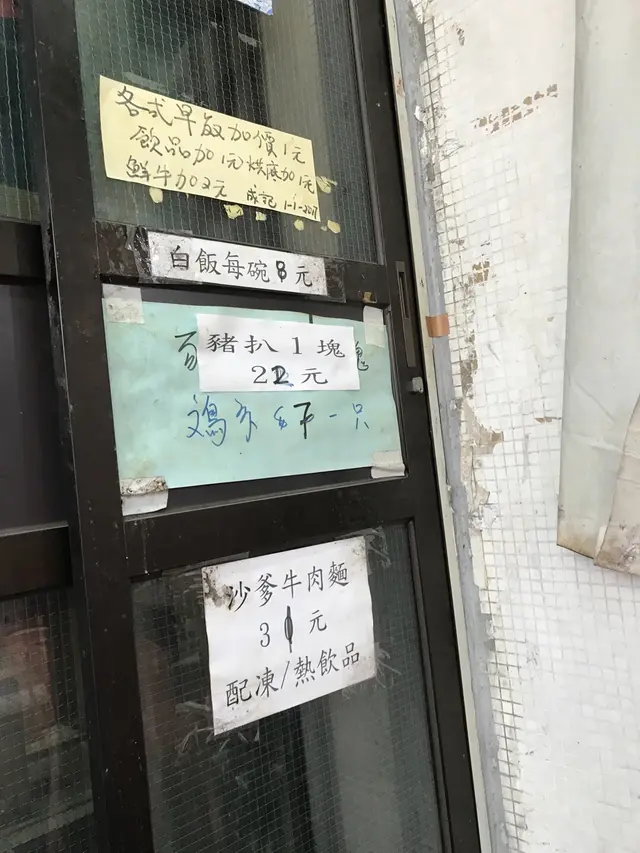 各式早飯加價1元
飲品加1元烘底加1元
鮮牛加2元 成記 1-1-2017
白飯每碗8元
豬扒1塊
22元
一只
沙爹牛肉麵
31元
配凍/熱飲品